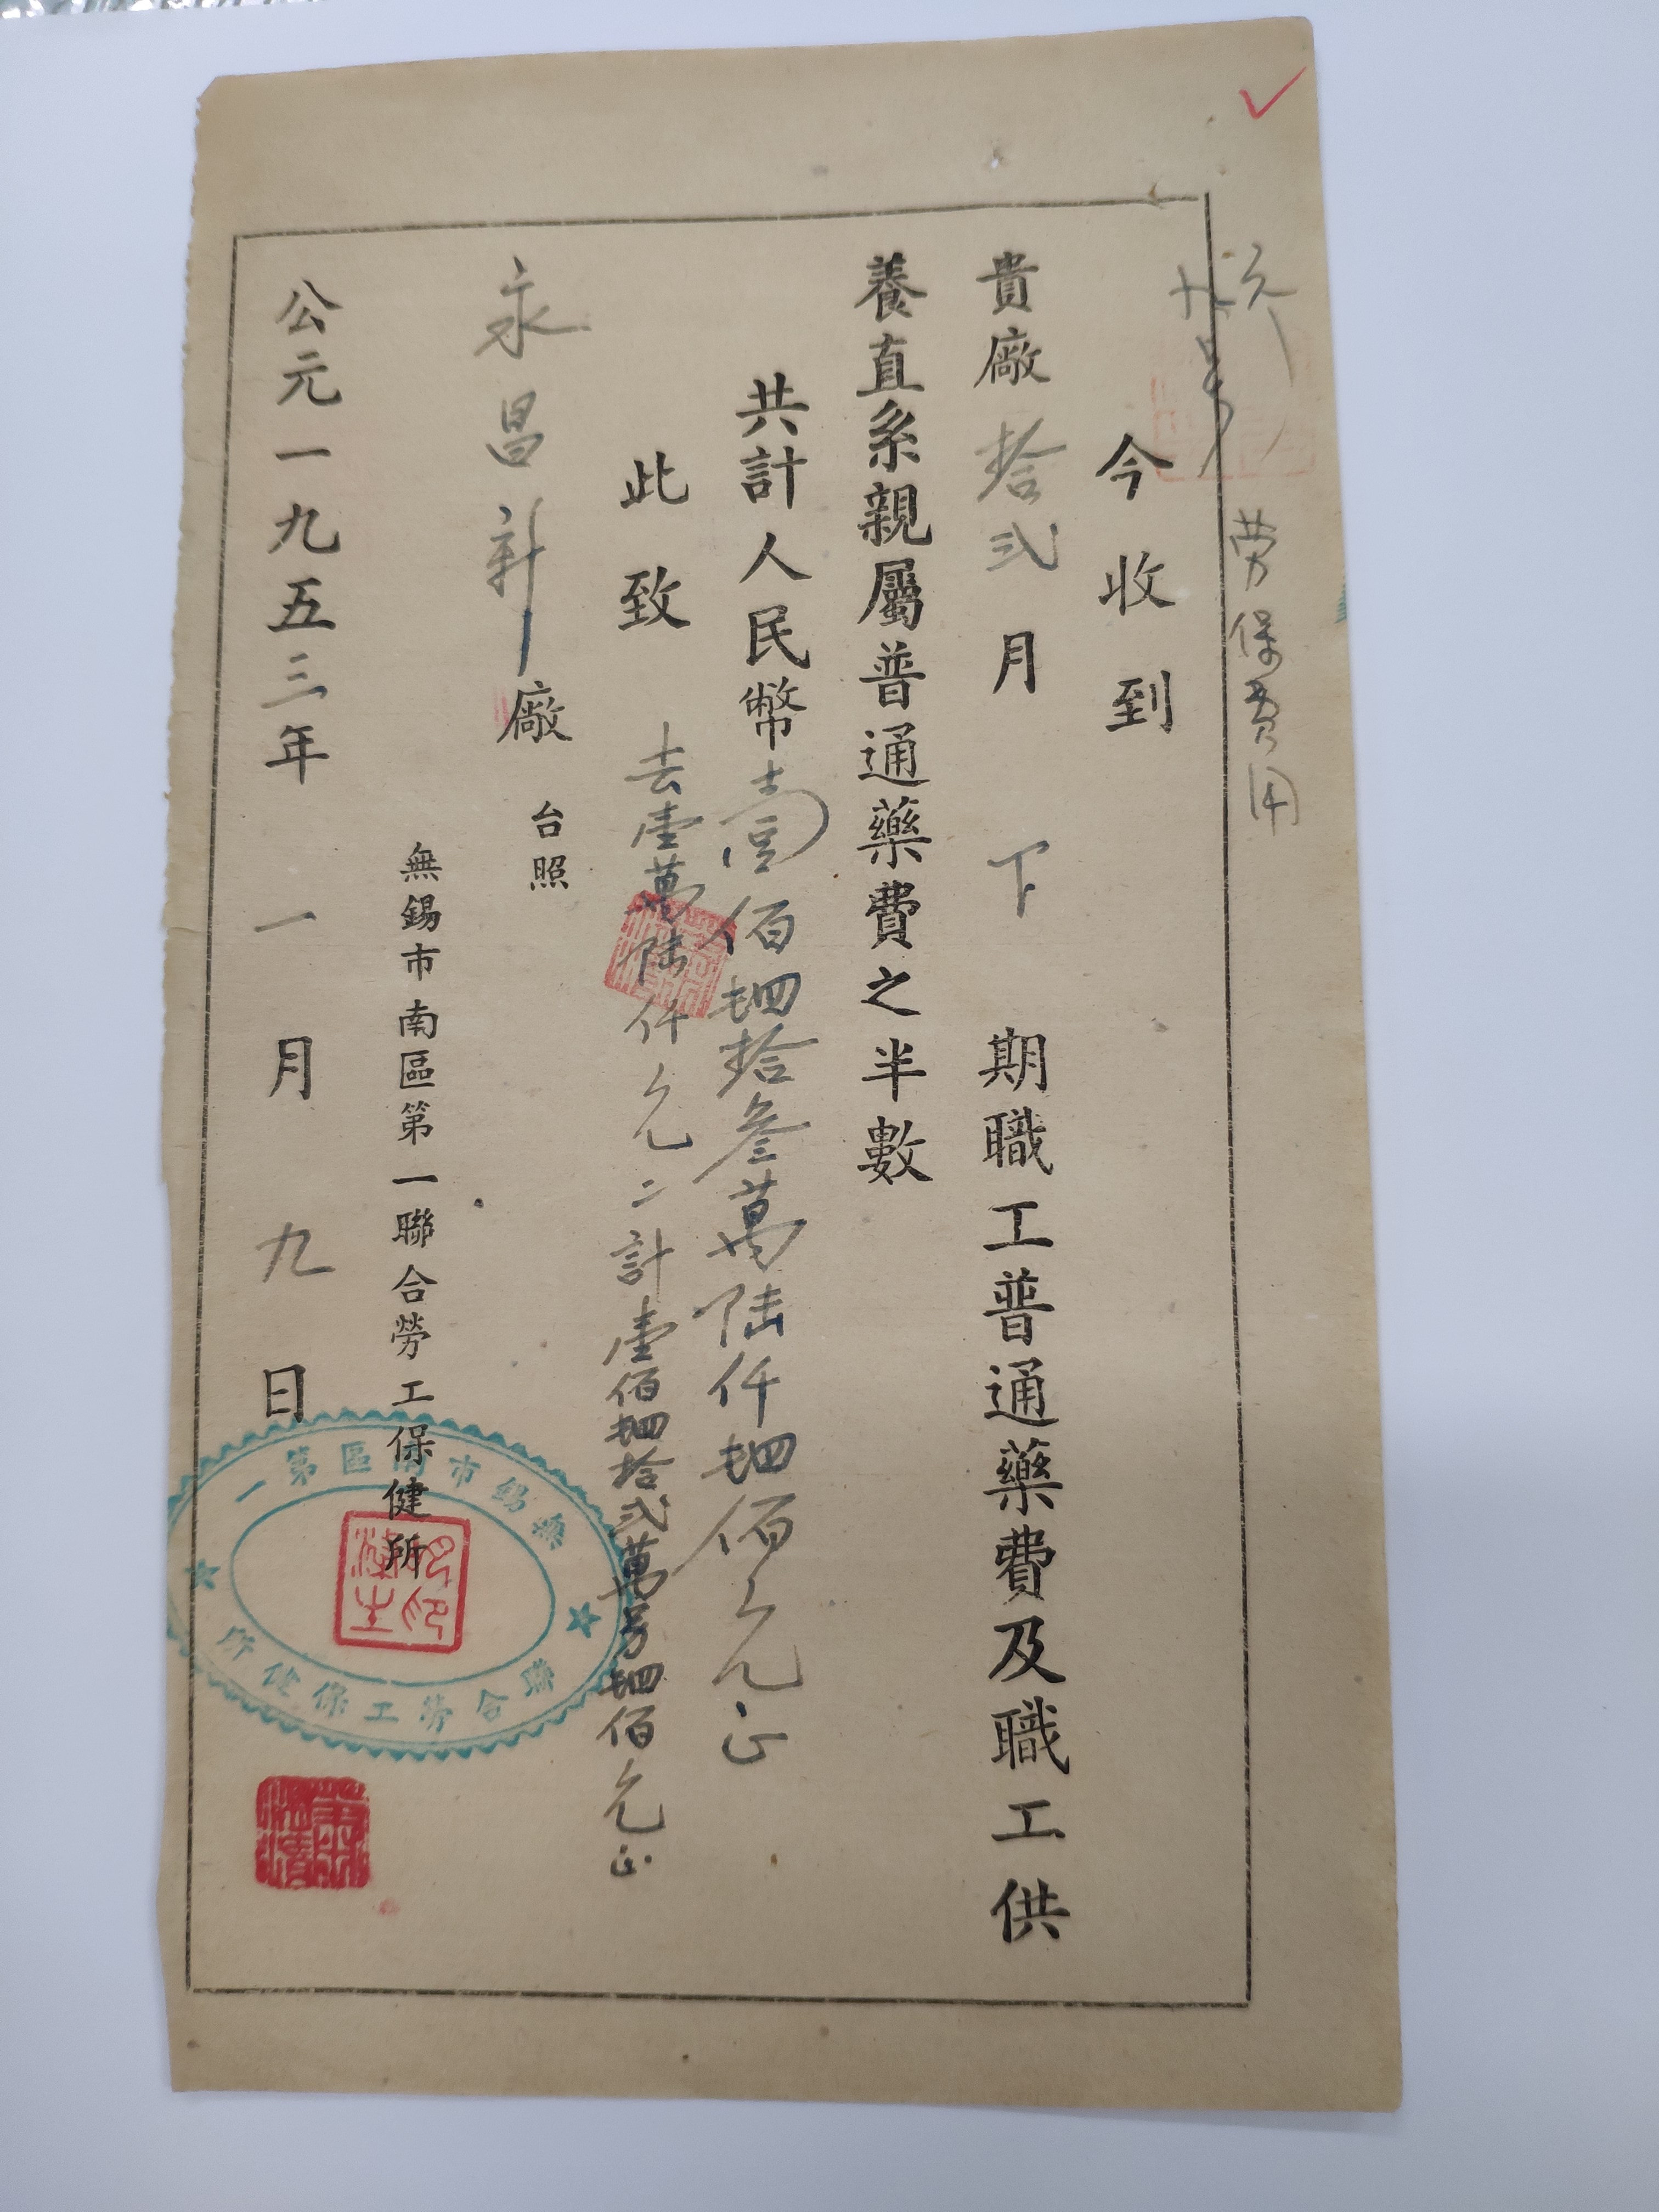 劳保費用
今收到
貴廠拾弍月下期職工普通藥費及職工供
養直系親屬普通藥費之半數
共計人民幣壹佰肆拾叁萬陸仟肆佰元正
此致
去壹萬陸仟元二計壹佰肆拾弍萬另肆佰元正
永昌新廠
台照
無錫市南區第一聯合勞工保健所
公元一九五三年一月九日
無錫市南區第一
聯合勞工保健所